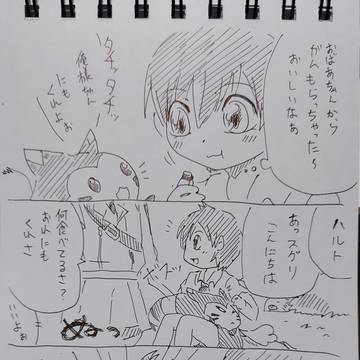 おばあちゃんから
ガムもらっちゃった〜
おいしいなぁ
タチッタチッ
俺様ちゃん
にも
くれよぉ
ハルト
あっスグリ
こんにちは
何食べてるさ？
おれにも
くんさ
いいよぉ